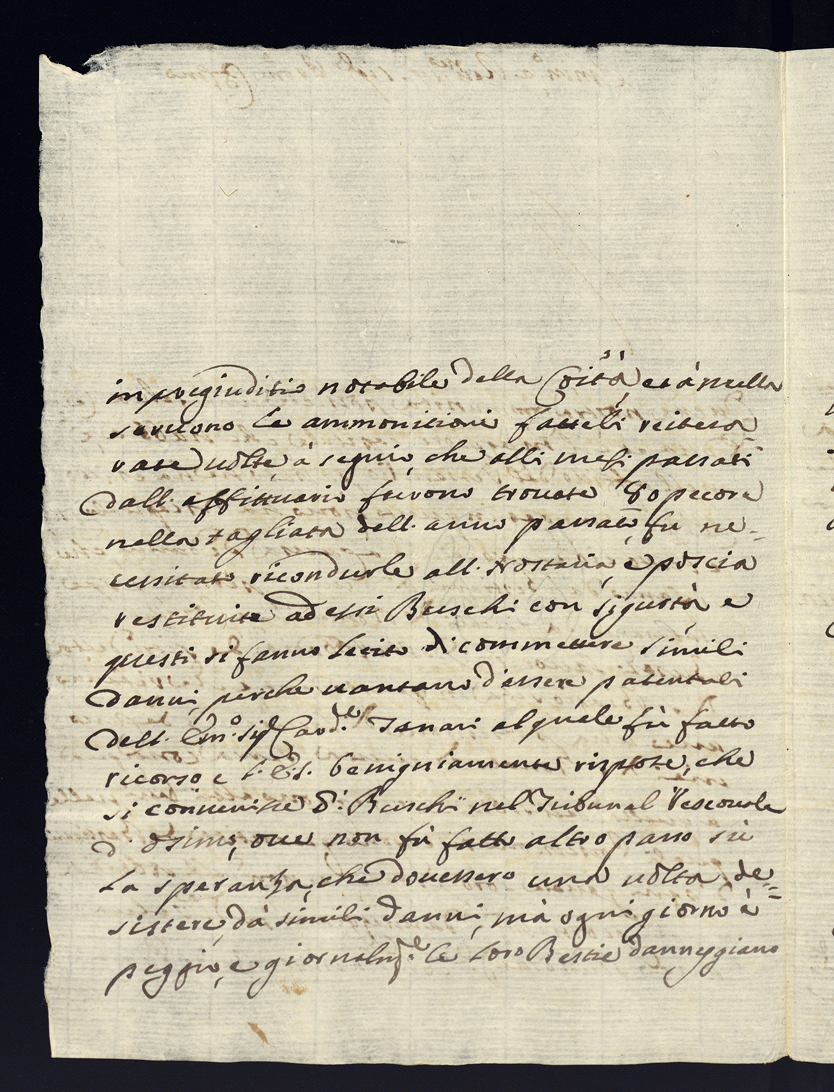 in pregiuditio notabile della Co͠ità, et à nulla
servono le ammonitioni fatteli reitera
rate uolte, à segno, che alli mesi passati
dall'affittuario furono trouate 80 pecore
nella tagliata dell'anno passato, fu ne-
cessitato ricondurle all'Hostaria, e poscia
restituite ad essi Buschi con sigurtà, e
questi si fanno lecito di commettere simili
danni, perche uantano d'essere patentati
dell'Em.o Sig.r Card.le Tanari al quale fù fatto
ricorso, e S. E. S. benigniamente rispose, che
si conuenisse d.i Buschi nel Tribunal Vescouale
d'Osimo, oue non fù fatto altro passo sù
la speranza, che douessero una uolta de=
sistere dà simili danni, mà ogni giorno è
peggio, e giornalm.te le loro Bestie danneggiano